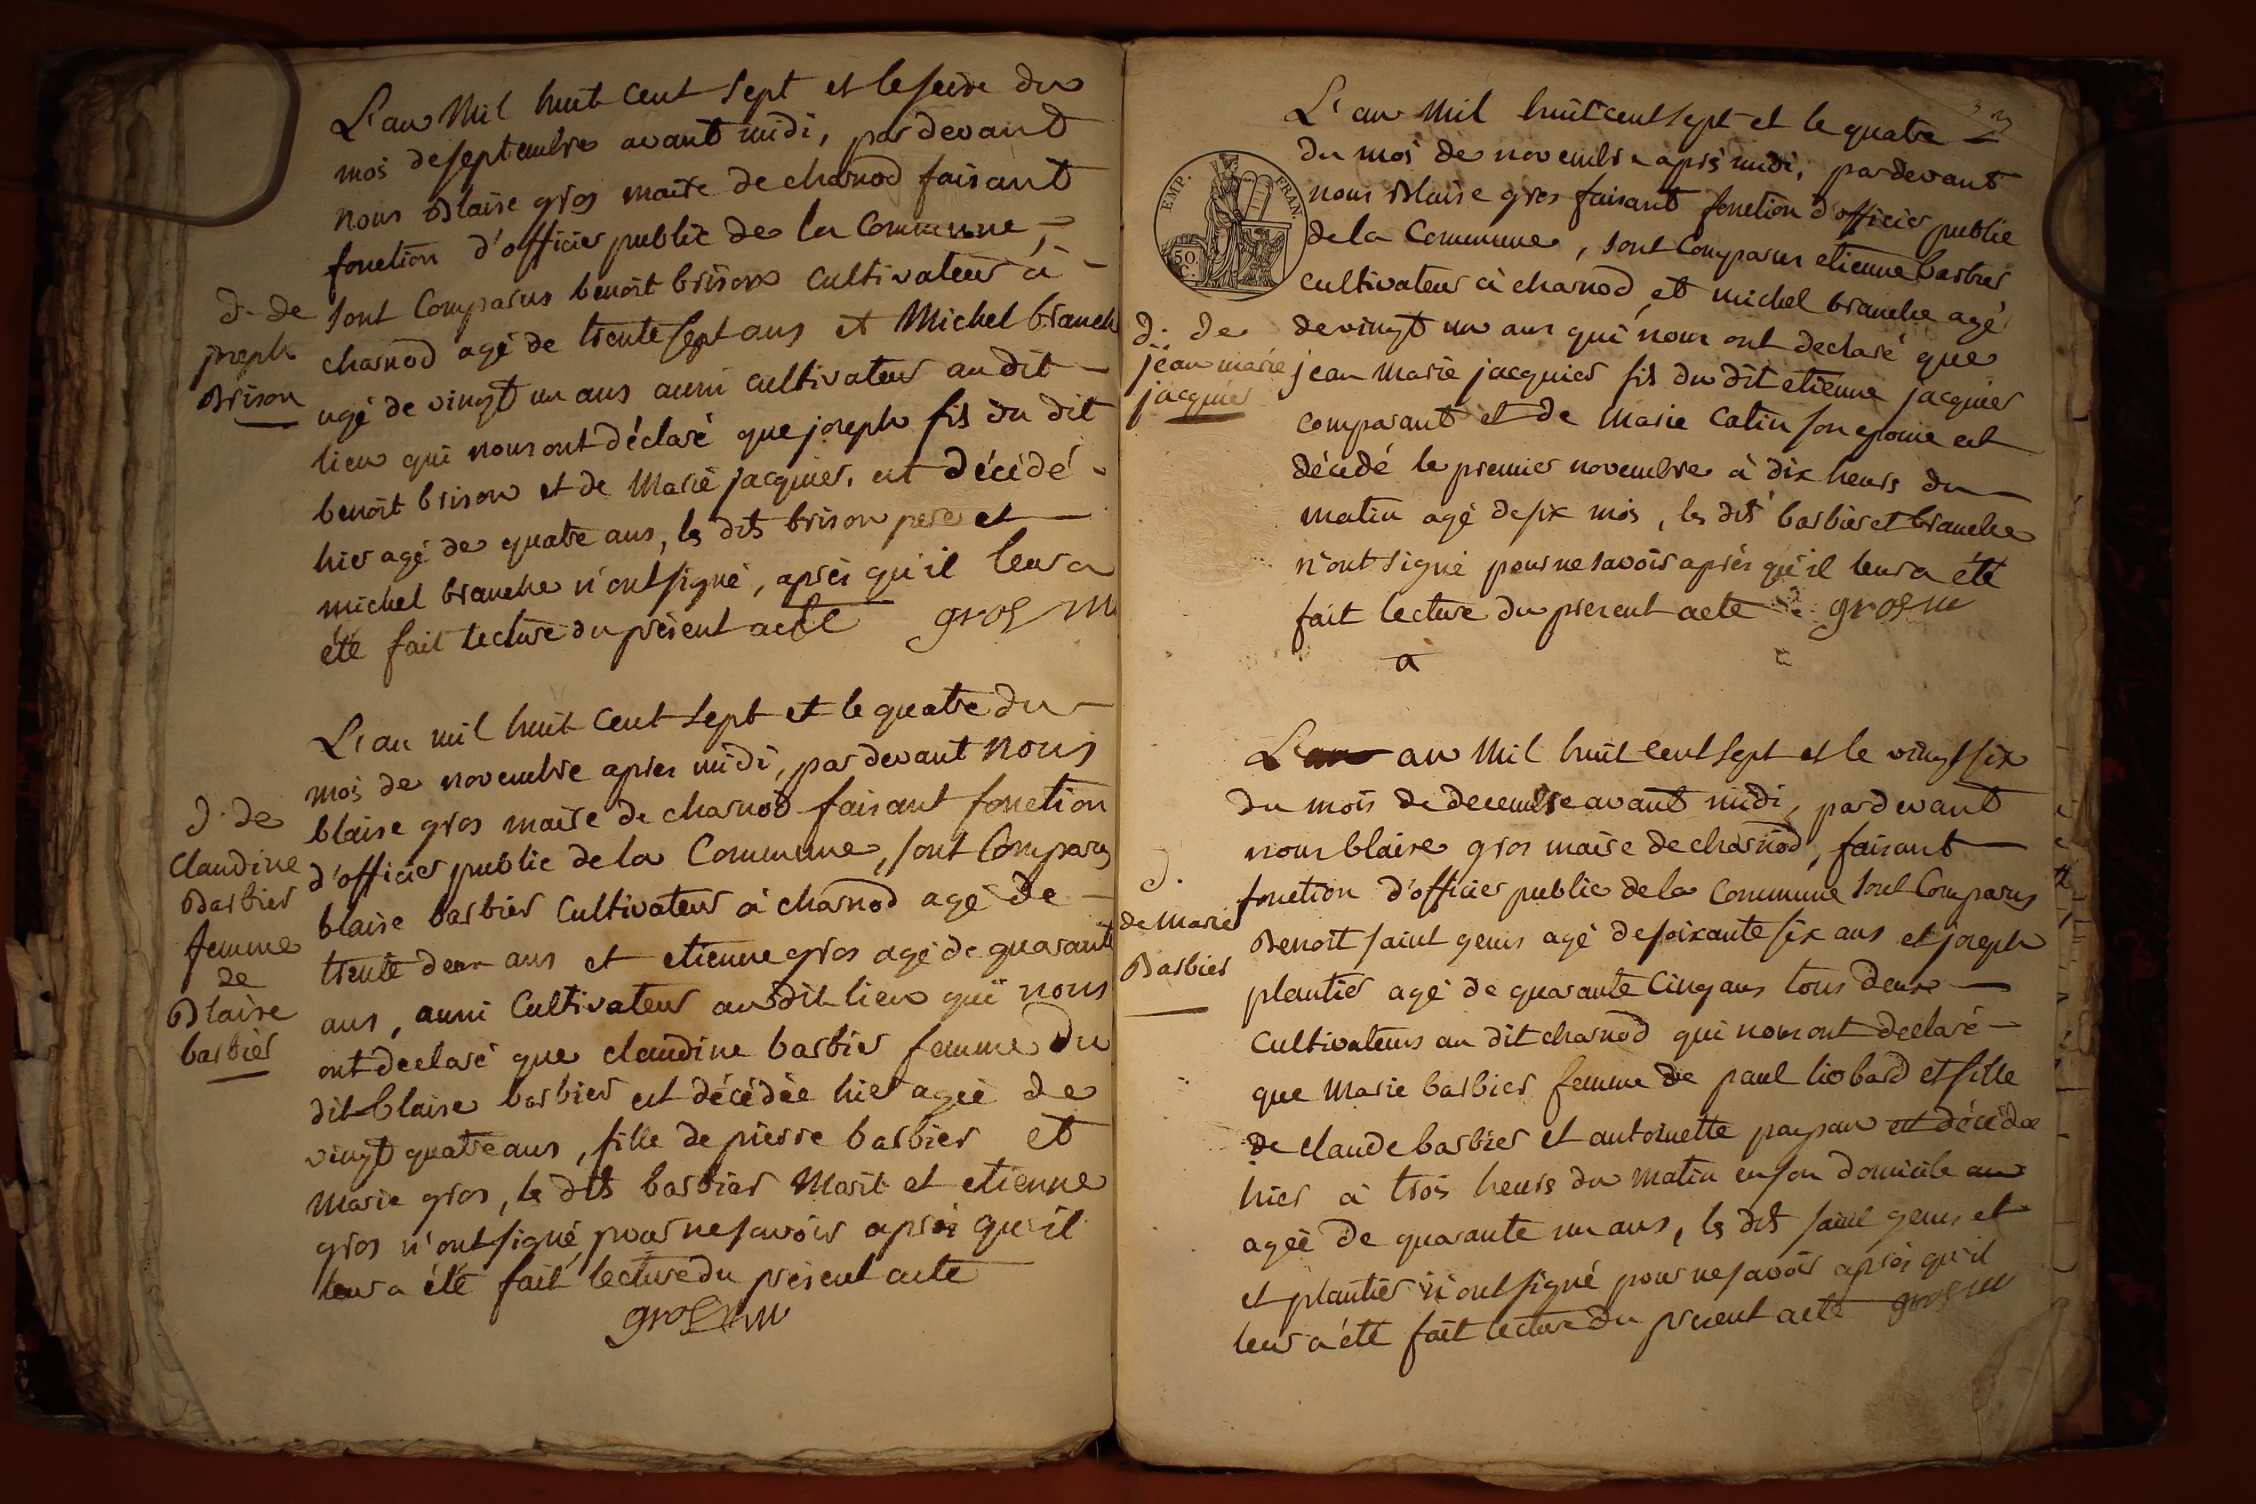 L'an Mil huit cent sept et le seize du
mois de septembre avant midi, pardevant
nous Blaise gros maire de charnod faisant
fonction d'officier public de la Commune,
d. de
joseph
Brison
sont Comparus benoit brison cultivateur à
charnod agé de trente sept ans et Michel branch
agé de vingt un ans aussi cultivateur au dit
lieu qui nous ont déclaré que joseph fils du dit
benoit brison et de Marie jacquier, est décédé
hier agé de quatre ans, les dits brison pere et
michel branche n'ont signé, après qu'il leur a
été fait lecture du présent acte gros m
L'an mil huit cent sept et le quatre du
mois de novembre apres midi, par devant nous
blaise gros maire de charnod faisant fonction
d'officier public de la Commune, sont Comparus
d. de
Claudine
Barbier
femme
de
Blaise
barbier
blaise barbier Cultivateur à charnod agé de
trente deux ans et etienne gros agé de quarante
ans, aussi Cultivateur au dit lieu qui nous
ont declaré que claudine barbier femme du
dit blaise barbier est décédée hier agée de
vingt quatre ans, fille de pierre barbier et
Marie gros, le dits barbier Marit et etienne
gros n'ont signé pour ne savoir après qu'il
leur a été fait lecture du présent acte
gros m
EMP. FRAN.
50.
C.
L'an mil huit cent sept et le quatre
du mois de novembre après midi, pardevant
nous Blaise gros faisant fonction d'officier public
de la Commune, sont Comparus etienne barbier
cultivateur à charnod et michel branche agé
d. de
jean marie
jacquier
de vingt un ans qui nous ont declaré que
jean Marie jacquier fils du dit etienne jacquier
comparant et de Marie Catin son epouse est
décédé le premier novembre à dix heurs du
matin agé de six mois, les dits barbier et branche
n'ont signé pour ne savoir après qu'il leur a été
fait lecture du present acte gros m
a
L'an an Mil huit Cent sept et le vingt six
du mois de decembre avant midi, pardevant
nous blaise gros maire de charnod, faisant
fonction d'officier public de la Commune sont Comparus
d.
de marie
Barbier
Benoit saint genis agé de soixante six ans et joseph
plantier agé de quarante Cinq ans tous deux
Cultivateurs au dit charnod qui nous ont declaré
que Marie barbier femme de paul liobard et fille
de claude barbier et antoinette paysan est décédée
hier à trois heurs du matin en son domicile
agée de quarante un ans, les dits saint genis et
et plantier n'ont signé pour ne savoir après qu'il
leur a été fait lecture du present acte gros m